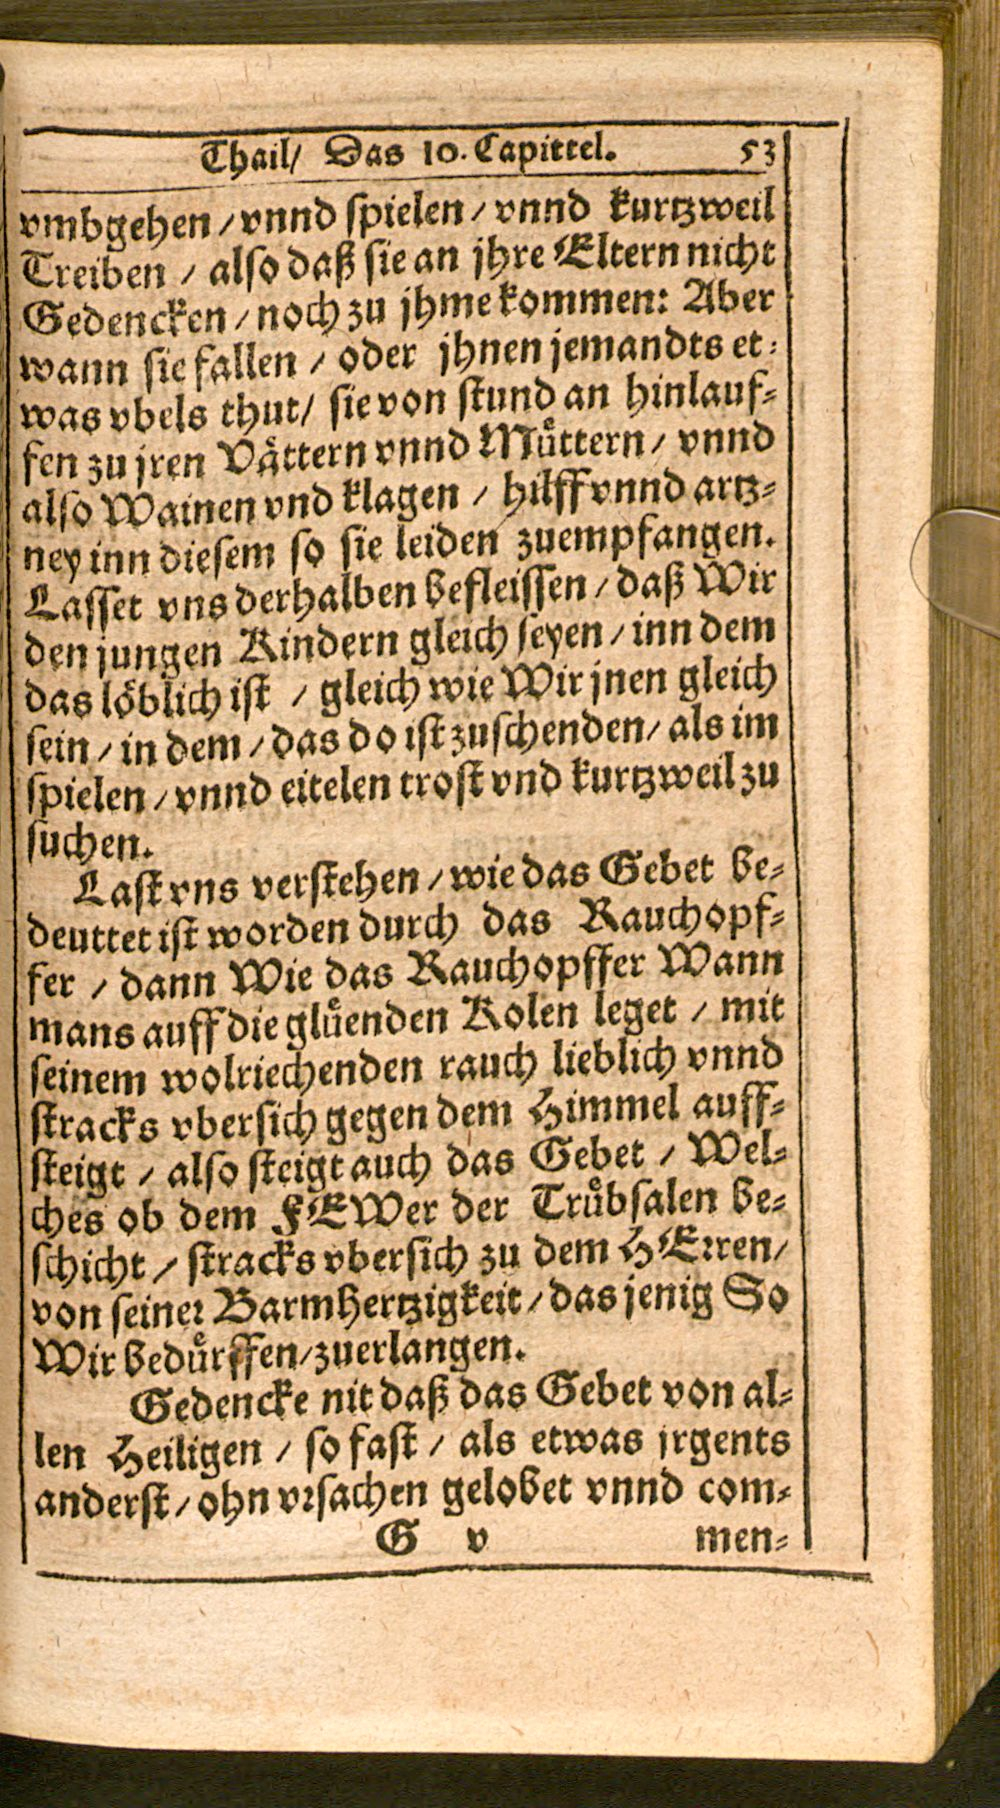 Thail/ Das 10. Capittel. 53
vmbgehen / vnnd spielen / vnnd kurtzweil
Treiben / also daß sie an jhre Eltern nicht
Gedencken / noch zu jhme kommen: Aber
wann sie fallen / oder jhnen jemandts et-
was vbels thut / sie von stund an hinlauf-
fen zu jren Vättern vnnd Müttern / vnnd
also Wainen vnd klagen / hilff vnnd artz-
ney inn diesem so sie leiden zuempfangen.
Lasset vns derhalben befleissen / daß Wir
den jungen Kindern gleich seyen / inn dem
das löblich ist / gleich wie Wir jnen gleich
sein / in dem / das do ist zuschenden / als im
spielen / vnnd eitelen trost vnd kurtzweil zu
suchen.
Last vns verstehen / wie das Gebet be-
deuttet ist worden durch das Rauchopf-
fer / dann Wie das Rauchopffer Wann
mans auff die glüenden Kolen leget / mit
seinem wolriechenden rauch lieblich vnnd
stracks vbersich gegen dem Himmel auff-
steigt / also steigt auch das Gebet / Wel-
ches ob dem FEWer der Trübsalen be-
schicht / stracks vbersich zu dem HErren /
von seiner Barmhertzigkeit / das jenig So
Wir bedürffen / zuerlangen.
Gedencke nit daß das Gebet von al-
len Heiligen / so fast / als etwas jrgents
anderst / ohn vrsachen gelobet vnnd com-
G v men-